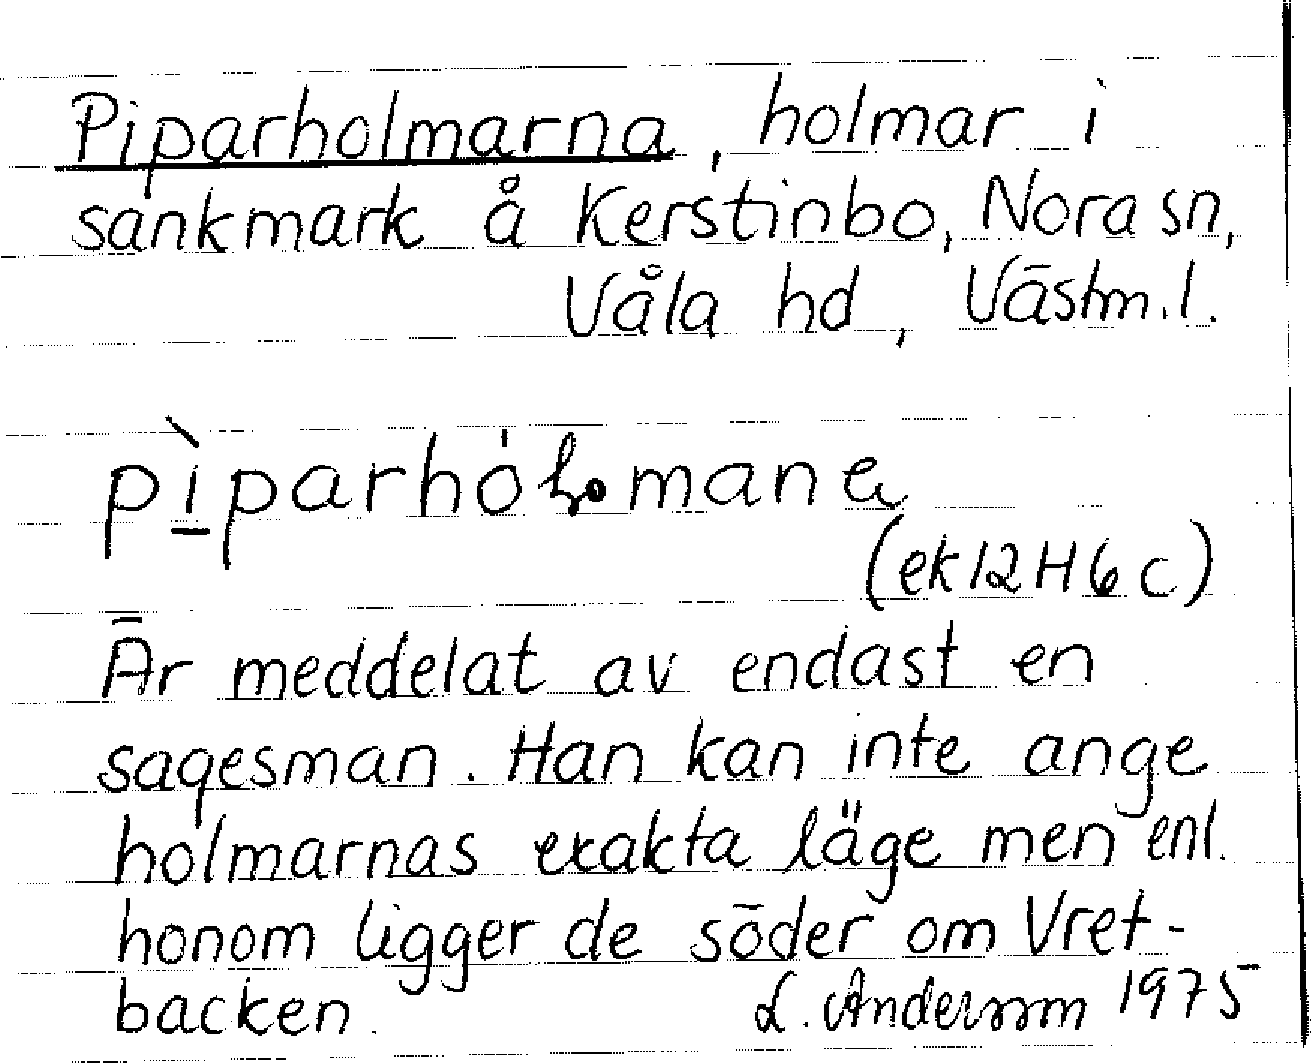 Piparholmarna, holmar i
sankmark å Kerstinbo, Nora sn,
Våla hd, Västm.l.
pìparhólmana
(ek 12 H 6 c)
Är meddelat av endast en
sagesman. Han kan inte ange
holmarnas exakta läge men enl.
honom ligger de söder om Vret-
backen.
L. Andersson 1975